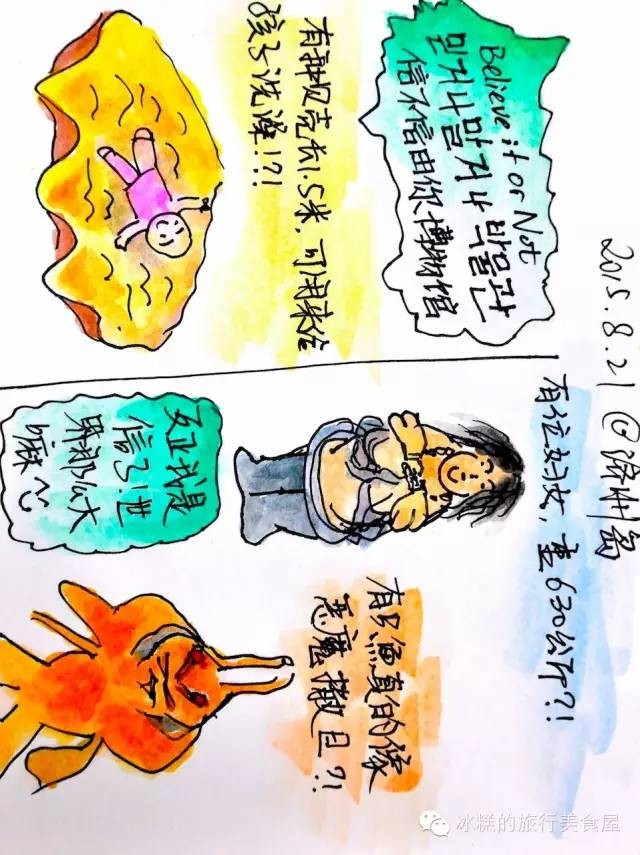 2015.8.21 @济州岛
Believe it or Not
믿거나 말거나 박물관
信不信由你博物馆
有种贝壳长1.5米,可用来给
孩子洗澡!?!
有位妇女,重630公斤?!
反正我是
信了!世
界那么大
嘛^^
有只鱼真的像
恶魔撒旦?!
冰糕的旅行美食屋